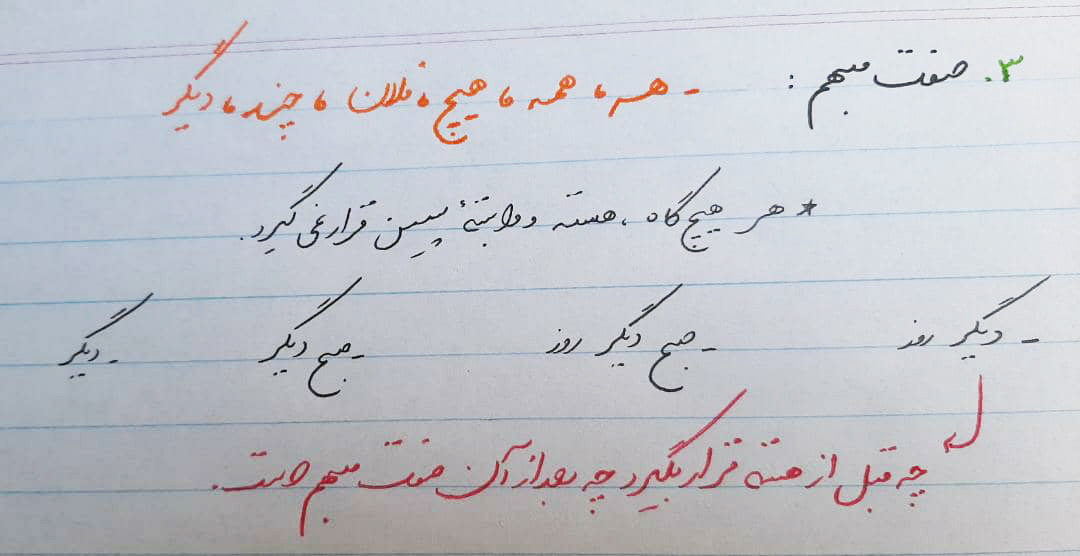 ۳. صفت مبهم : - هر، همه، هیچ، فلان، چند، دیگر
* هر هیچ گاه، هسته و وابستهٔ پسین قرار نمی گیرد.
- دیگر روز - صبح دیگر روز - صبح دیگر - دیگر
چه قبل از هسته قرار بگیرد چه بعد از آن صفت مبهم است.